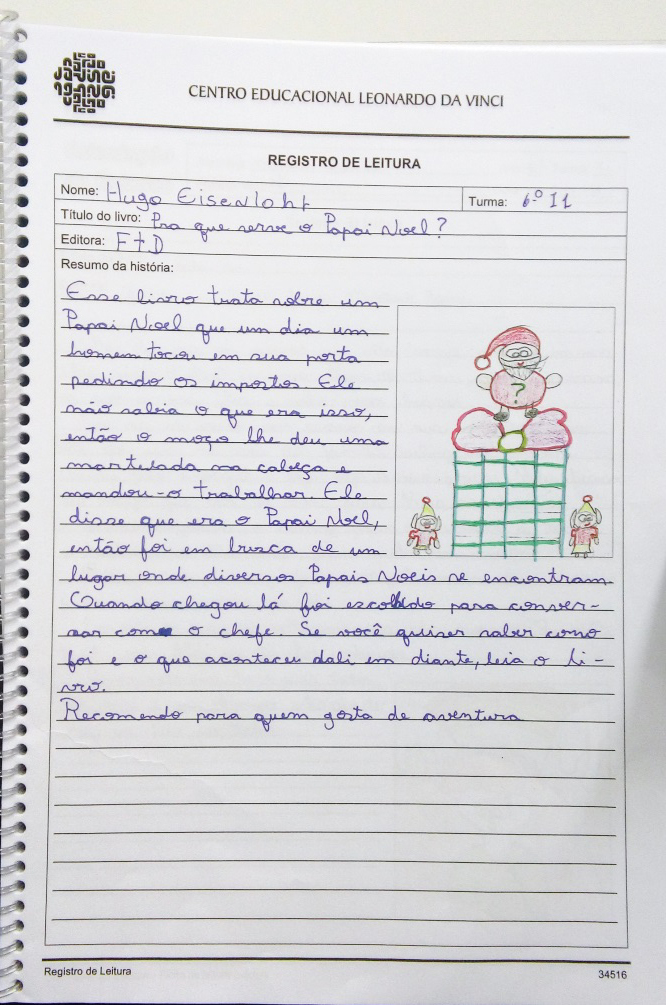 CENTRO EDUCACIONAL LEONARDO DA VINCI
REGISTRO DE LEITURA
Nome: Hugo Eisenloht Turma: 6º I1
Título do livro: Pra que serve o Papai Noel?
Editora: FTD
Resumo da história:
Esse livro trata sobre um
Papai Noel que um dia um
homem tocou em sua porta
pedindo os impostos. Ele
não sabia o que era isso,
então o moço lhe deu uma
martelada na cabeça e
mandou-o trabalhar. Ele
disse que era o Papai Noel,
então foi em busca de um
lugar onde diversos Papais Noeis se encontram.
Quando chegou lá foi escolhido para conver-
sar com o chefe. Se você quiser saber como
foi e o que aconteceu dali em diante, leia o li-
vro.
Recomendo para quem gosta de aventura
?
Registro de Leitura 34516